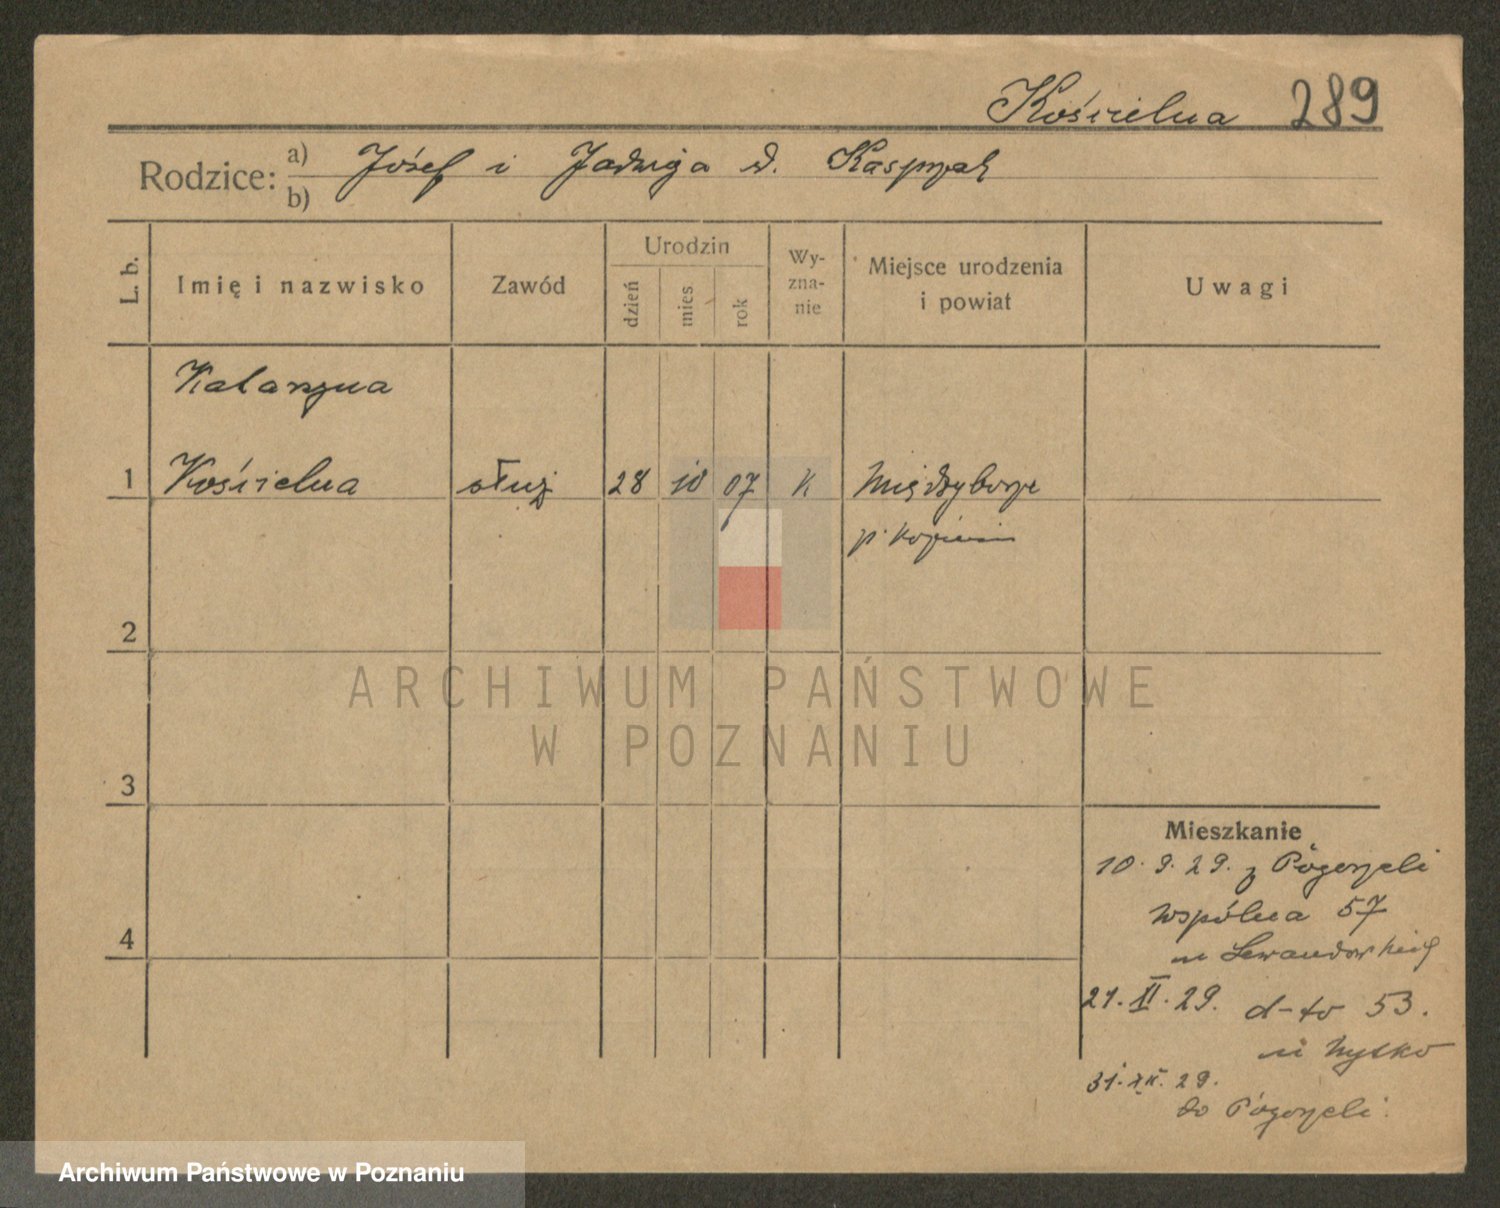 Kościelna 289
Rodzice: a) Józef i Jadwiga d. Kasprzak
b)
L. b. Imię i nazwisko Zawód Urodzin dzień mies rok Wy-zna-nie Miejsce urodzenia i powiat Uwagi
Katarzyna
1 Kościelna służ 28 10 07 k Międzyborze
p.
2
3
4
ARCHIWUM PAŃSTWOWE
W POZNANIU
Mieszkanie
10.9.29. z Pogorzeli
Wspólna 57
u Lewandowskiej
21.XI.29. d-to 53.
u
31.XII.29.
do Pogorzeli
Archiwum Państwowe w Poznaniu